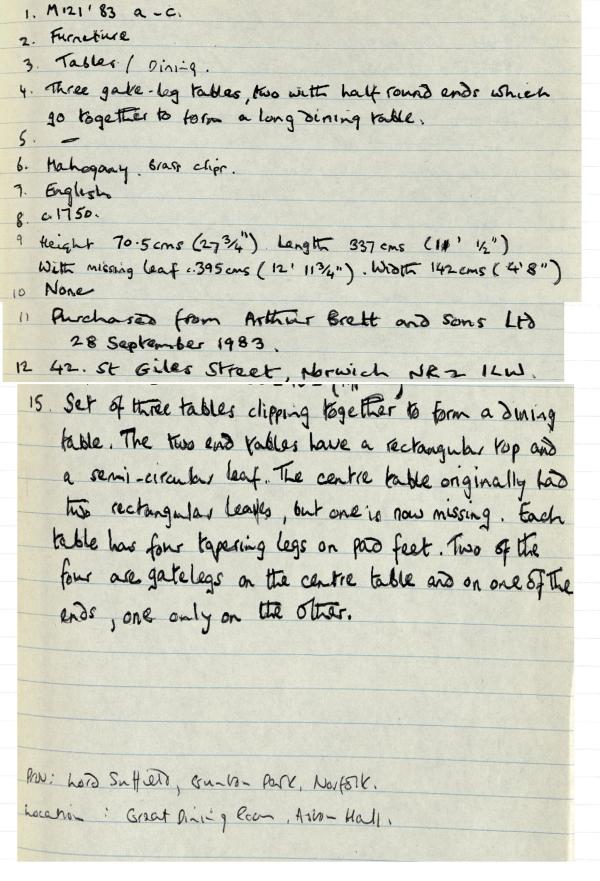 1. M121'83 a-c.
2. Furniture
3. Tables / Dining.
4. Three gate-leg tables, two with half round ends which
go together to form a long dining table.
5. —
6. Mahogany. Brass clips.
7. English
8. c.1750.
9 Height 70.5cms (27 3/4") Length 337 cms (11' 1/2")
With missing leaf c.395cms (12' 11 3/4"). Width 142cms (4'8")
10 None
11 Purchased from Arthur Brett and Sons Ltd
28 September 1983.
12 42. St Giles Street, Norwich NR2 1LW.
15. Set of three tables clipping together to form a dining
table. The two end tables have a rectangular top and
a semi-circular leaf. The centre table originally had
two rectangular leaves, but one is now missing. Each
table has four tapering legs on pad feet. Two of the
four are gatelegs on the centre table and on one of the
ends, one only on the other.
Prov: Lord Suffield, Gunton Park, Norfolk.
Location : Great Dining Room, Aston Hall.